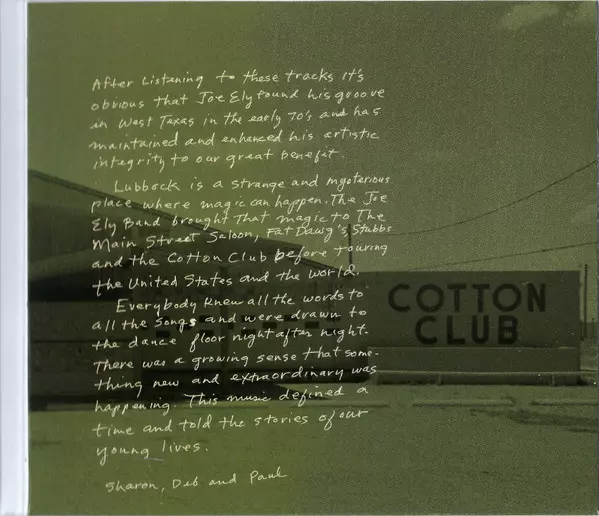 After Listening to these tracks it's
obvious that Joe Ely found his groove
in West Texas in the early 70's and has
maintained and enhanced his artistic
integrity to our great benefit.
Lubbock is a strange and mysterious
place where magic can happen. The Joe
Ely Band brought that magic to The
Main Street Saloon, Fat Dawg's, Stubbs
and the Cotton Club before touring
the United States and the world.
Everybody knew all the words to
all the songs and were drawn to
the dance floor night after night.
There was a growing sense that some-
thing new and extraordinary was
happening. This music defined a
time and told the stories of our
young lives.
Sharon, Deb and Paul
COTTON
CLUB